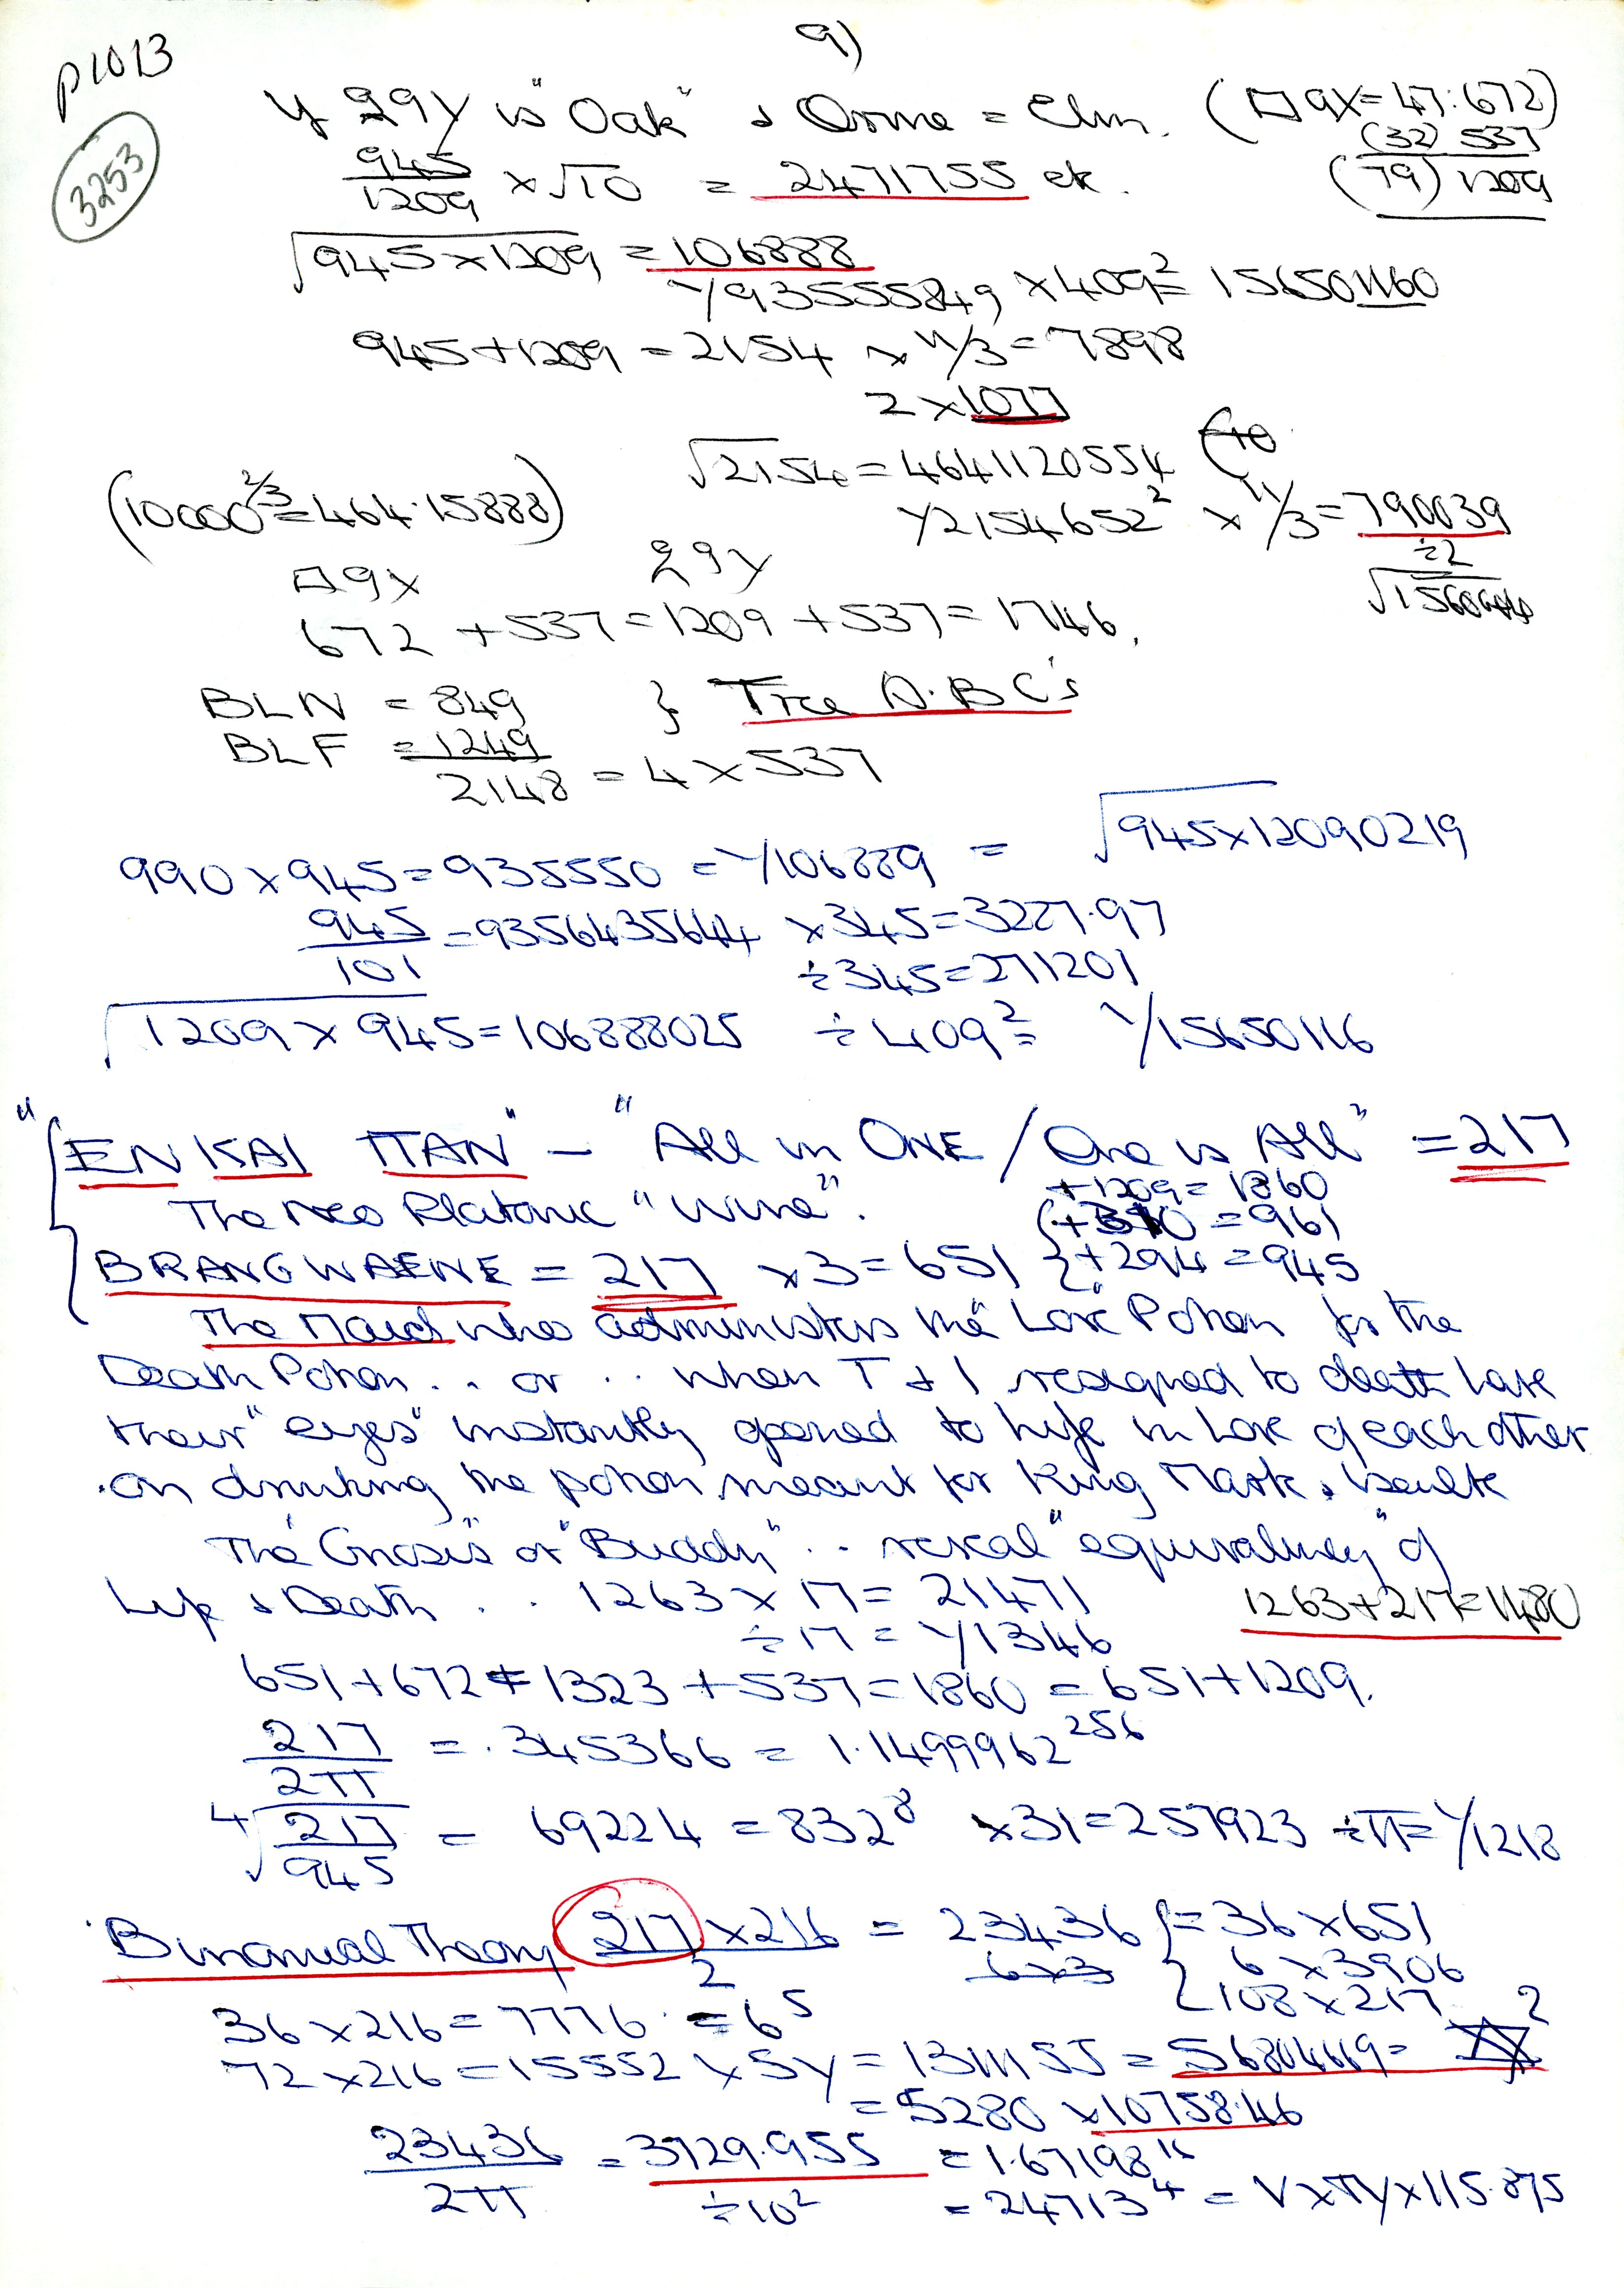 9)
p1013
3253
y 29y is "Oak" & Orme = Elm. (□9x = 47:672)
(32) 537
(79) 1209
945/1209 × √10 = 2471755 etc.
√945×1209 = 106888
935555849 × 409² = 156501160
945+1209 = 2154 × 11/3 = 7898
2 × 1077
√2154 = 4641120554
(10000^2/3 = 464.15888)
2154652² × 11/3 = 790039
÷2
□9x 29y
672 + 537 = 1209 + 537 = 1746.
BLN = 849 } Tree A.B C's
BLF = 1249
2148 = 4 × 537
990 × 945 = 935550 = y106889 = √945×12090219
945/101 = 9356435644 × 345 = 3227.97
÷345 = 271201
√1209 × 945 = 106888025 ÷ 409² = y15650116
"EN KAI ΠAN" – "All in ONE / One is All" = 217
+1209 = 1860
The Neo Platonic "Wine".
(+310 = 961
BRANGWAENE = 217 ×3 = 651 } +294 = 945
The Maid who administers the "Love" Potion for the
Death Potion . . or . . when T & I resigned to death have
their "eyes" instantly opened to life in love of each other
on drinking the potion meant for King Mark & Iseult
The "Gnosis" or "Buddhi" . . reveal "equivalency" of
Life & Death . . 1263 × 17 = 21471
1263+217=1480
÷17 = y1346
651+672 = 1323 + 537 = 1860 = 651+1209.
217/2π = .345366 = 1.1499962^256
4√217/945 = 69224 = 832^8 ×31 = 257923 ÷π = y1218
Binomial Theory 217×216/2 = 23436 {= 36×651
6×3906
108×217
36×216 = 7776 = 6^5
72×216 = 15552 × 5y = 1311155 = 56804669 =
= 5280 × 10758.46
23436/2π = 3729.955 = 1.67198^16
÷10² = 24713^4 = V×πy×115.875